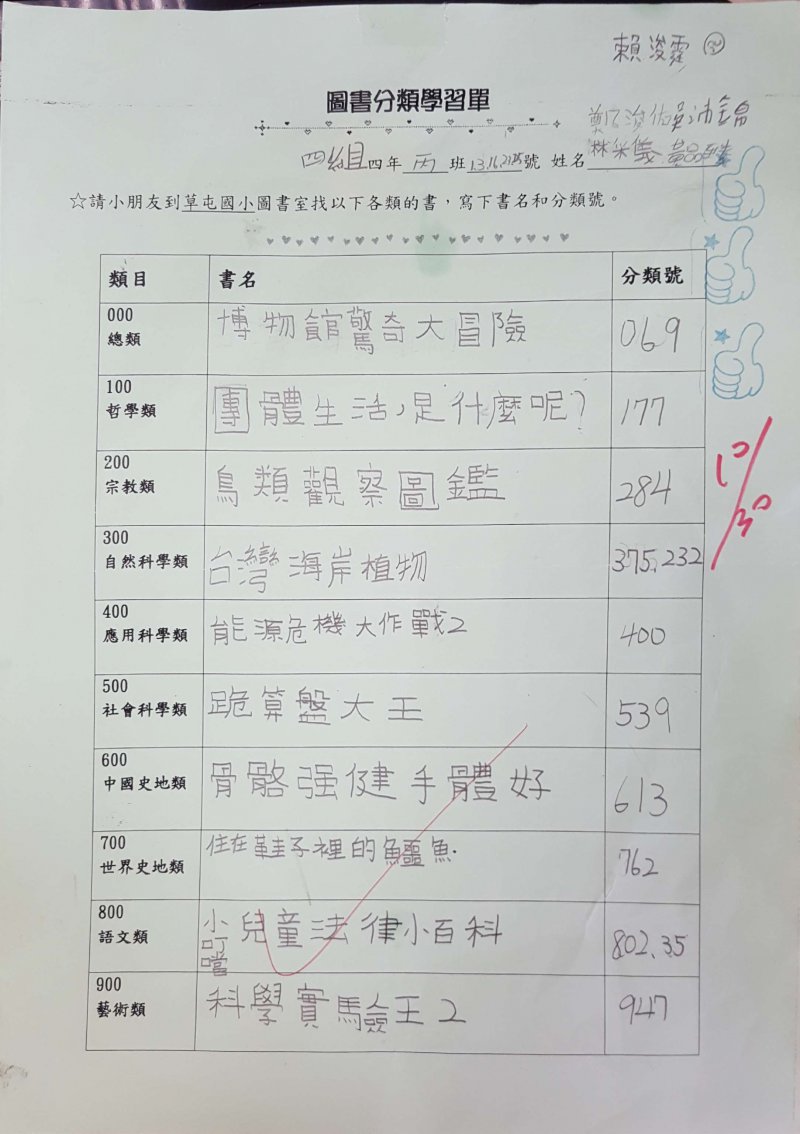 賴浚霏 34
圖書分類學習單
林采儀
四組 四年 丙 班 號 姓名
☆請小朋友到草屯國小圖書室找以下各類的書，寫下書名和分類號。
類目 書名 分類號
000 博物館驚奇大冒險 069
總類
100 團體生活，是什麼呢？ 177
哲學類
200 鳥類觀察圖鑑 284
宗教類
300 台灣海岸植物 375.232
自然科學類
400 能源危機大作戰2 400
應用科學類
500 跪算盤大王 539
社會科學類
600 骨骼强健手體好 613
中國史地類
700 住在鞋子裡的鱷魚. 762
世界史地類
800 小叮噹兒童法律小百科 802.35
語文類
900 科學實驗王2 947
藝術類
10/30